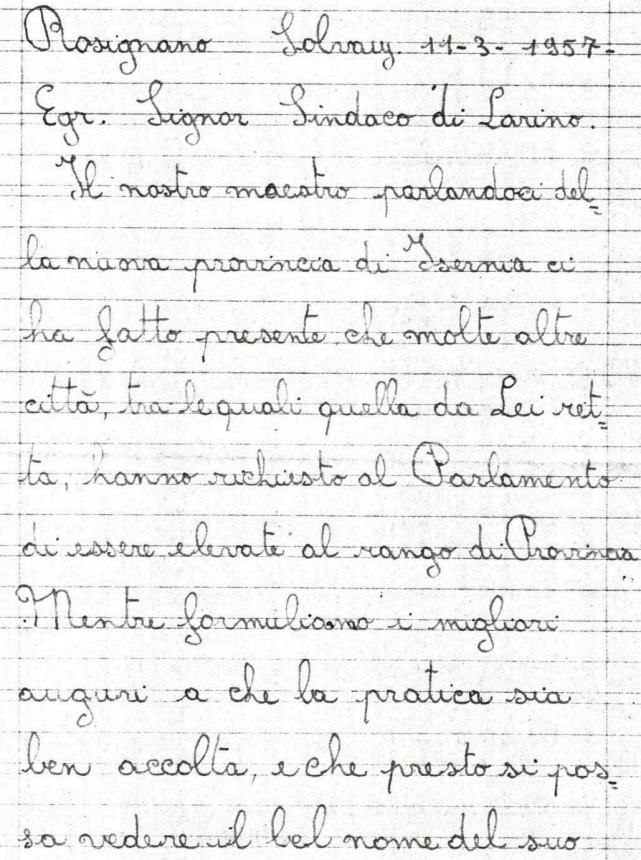 Rosignano Solvay 11-3-1957-
Egr. Signor Sindaco di Larino.
Il nostro maestro parlandoci del=
la nuova provincia di Isernia ci
ha fatto presente che molte altre
città, tra le quali quella da Lei ret=
ta, hanno richiesto al Parlamento
di essere elevate al rango di Provincia
Mentre formuliamo i migliori
auguri a che la pratica sia
ben accolta, e che presto si pos=
sa vedere il bel nome del suo